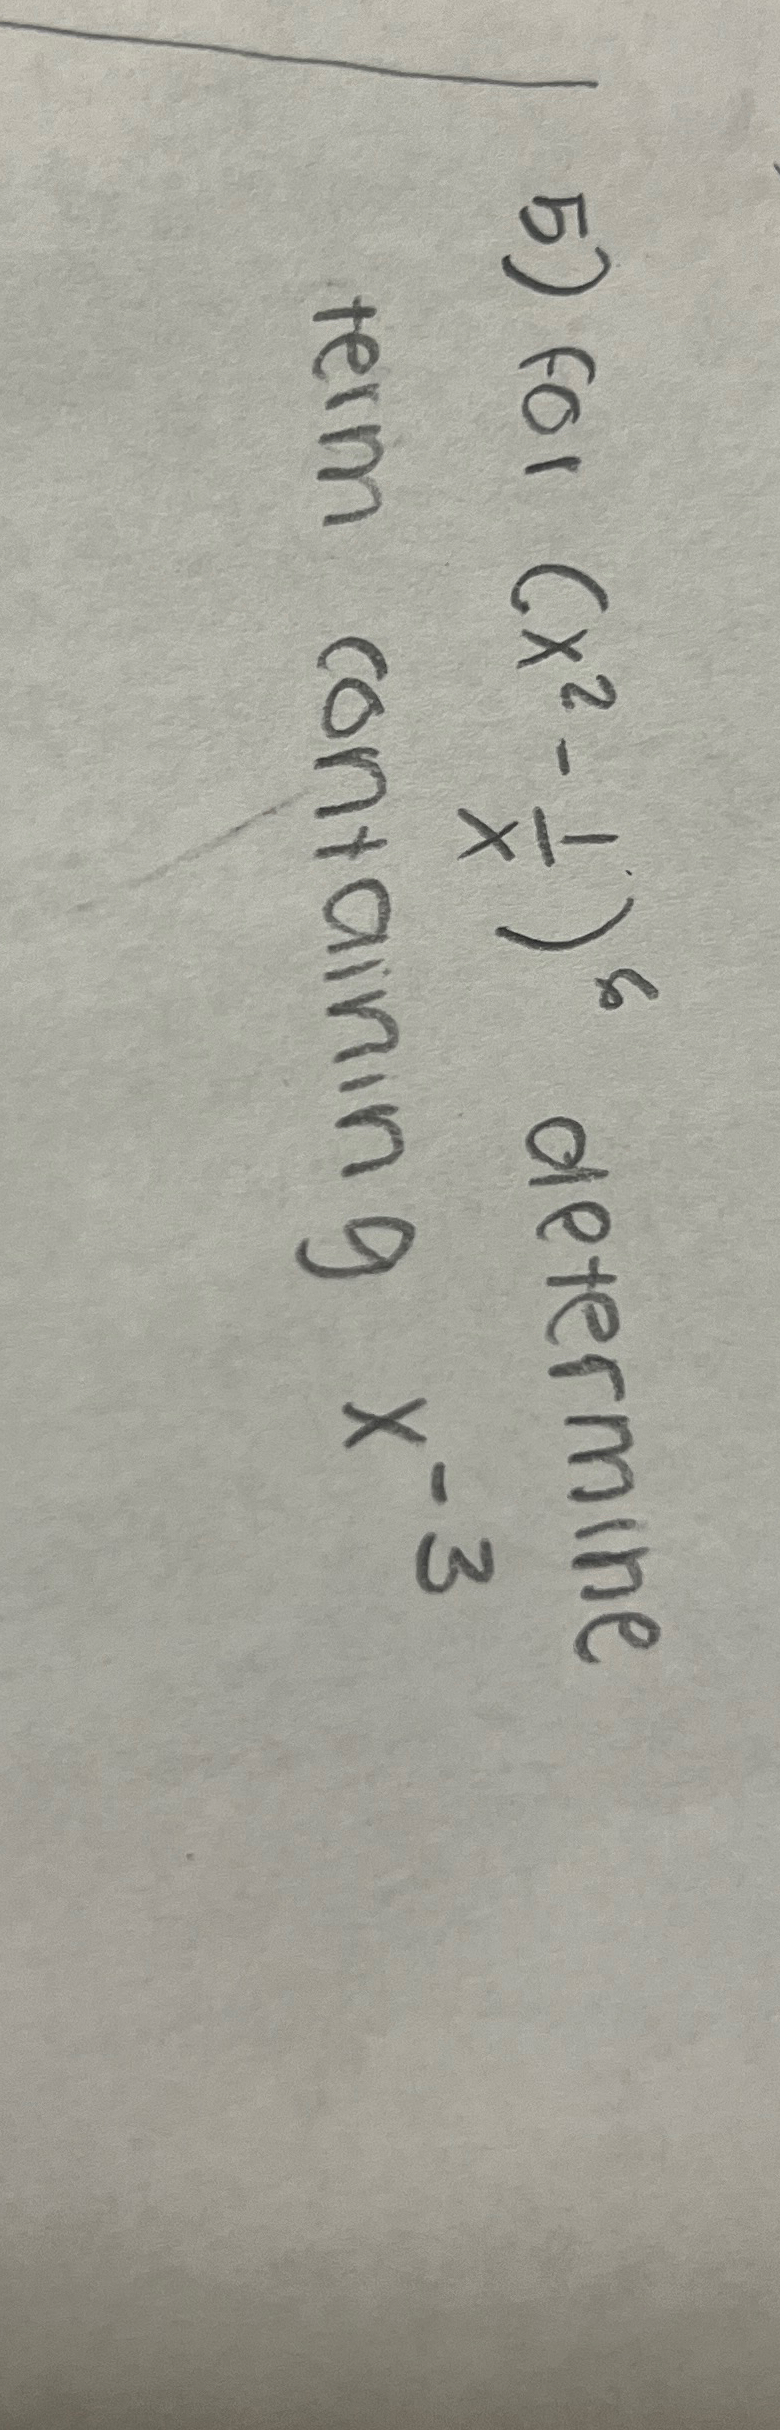 5) for (x² - 1/x)⁶ determine
term containing x⁻³